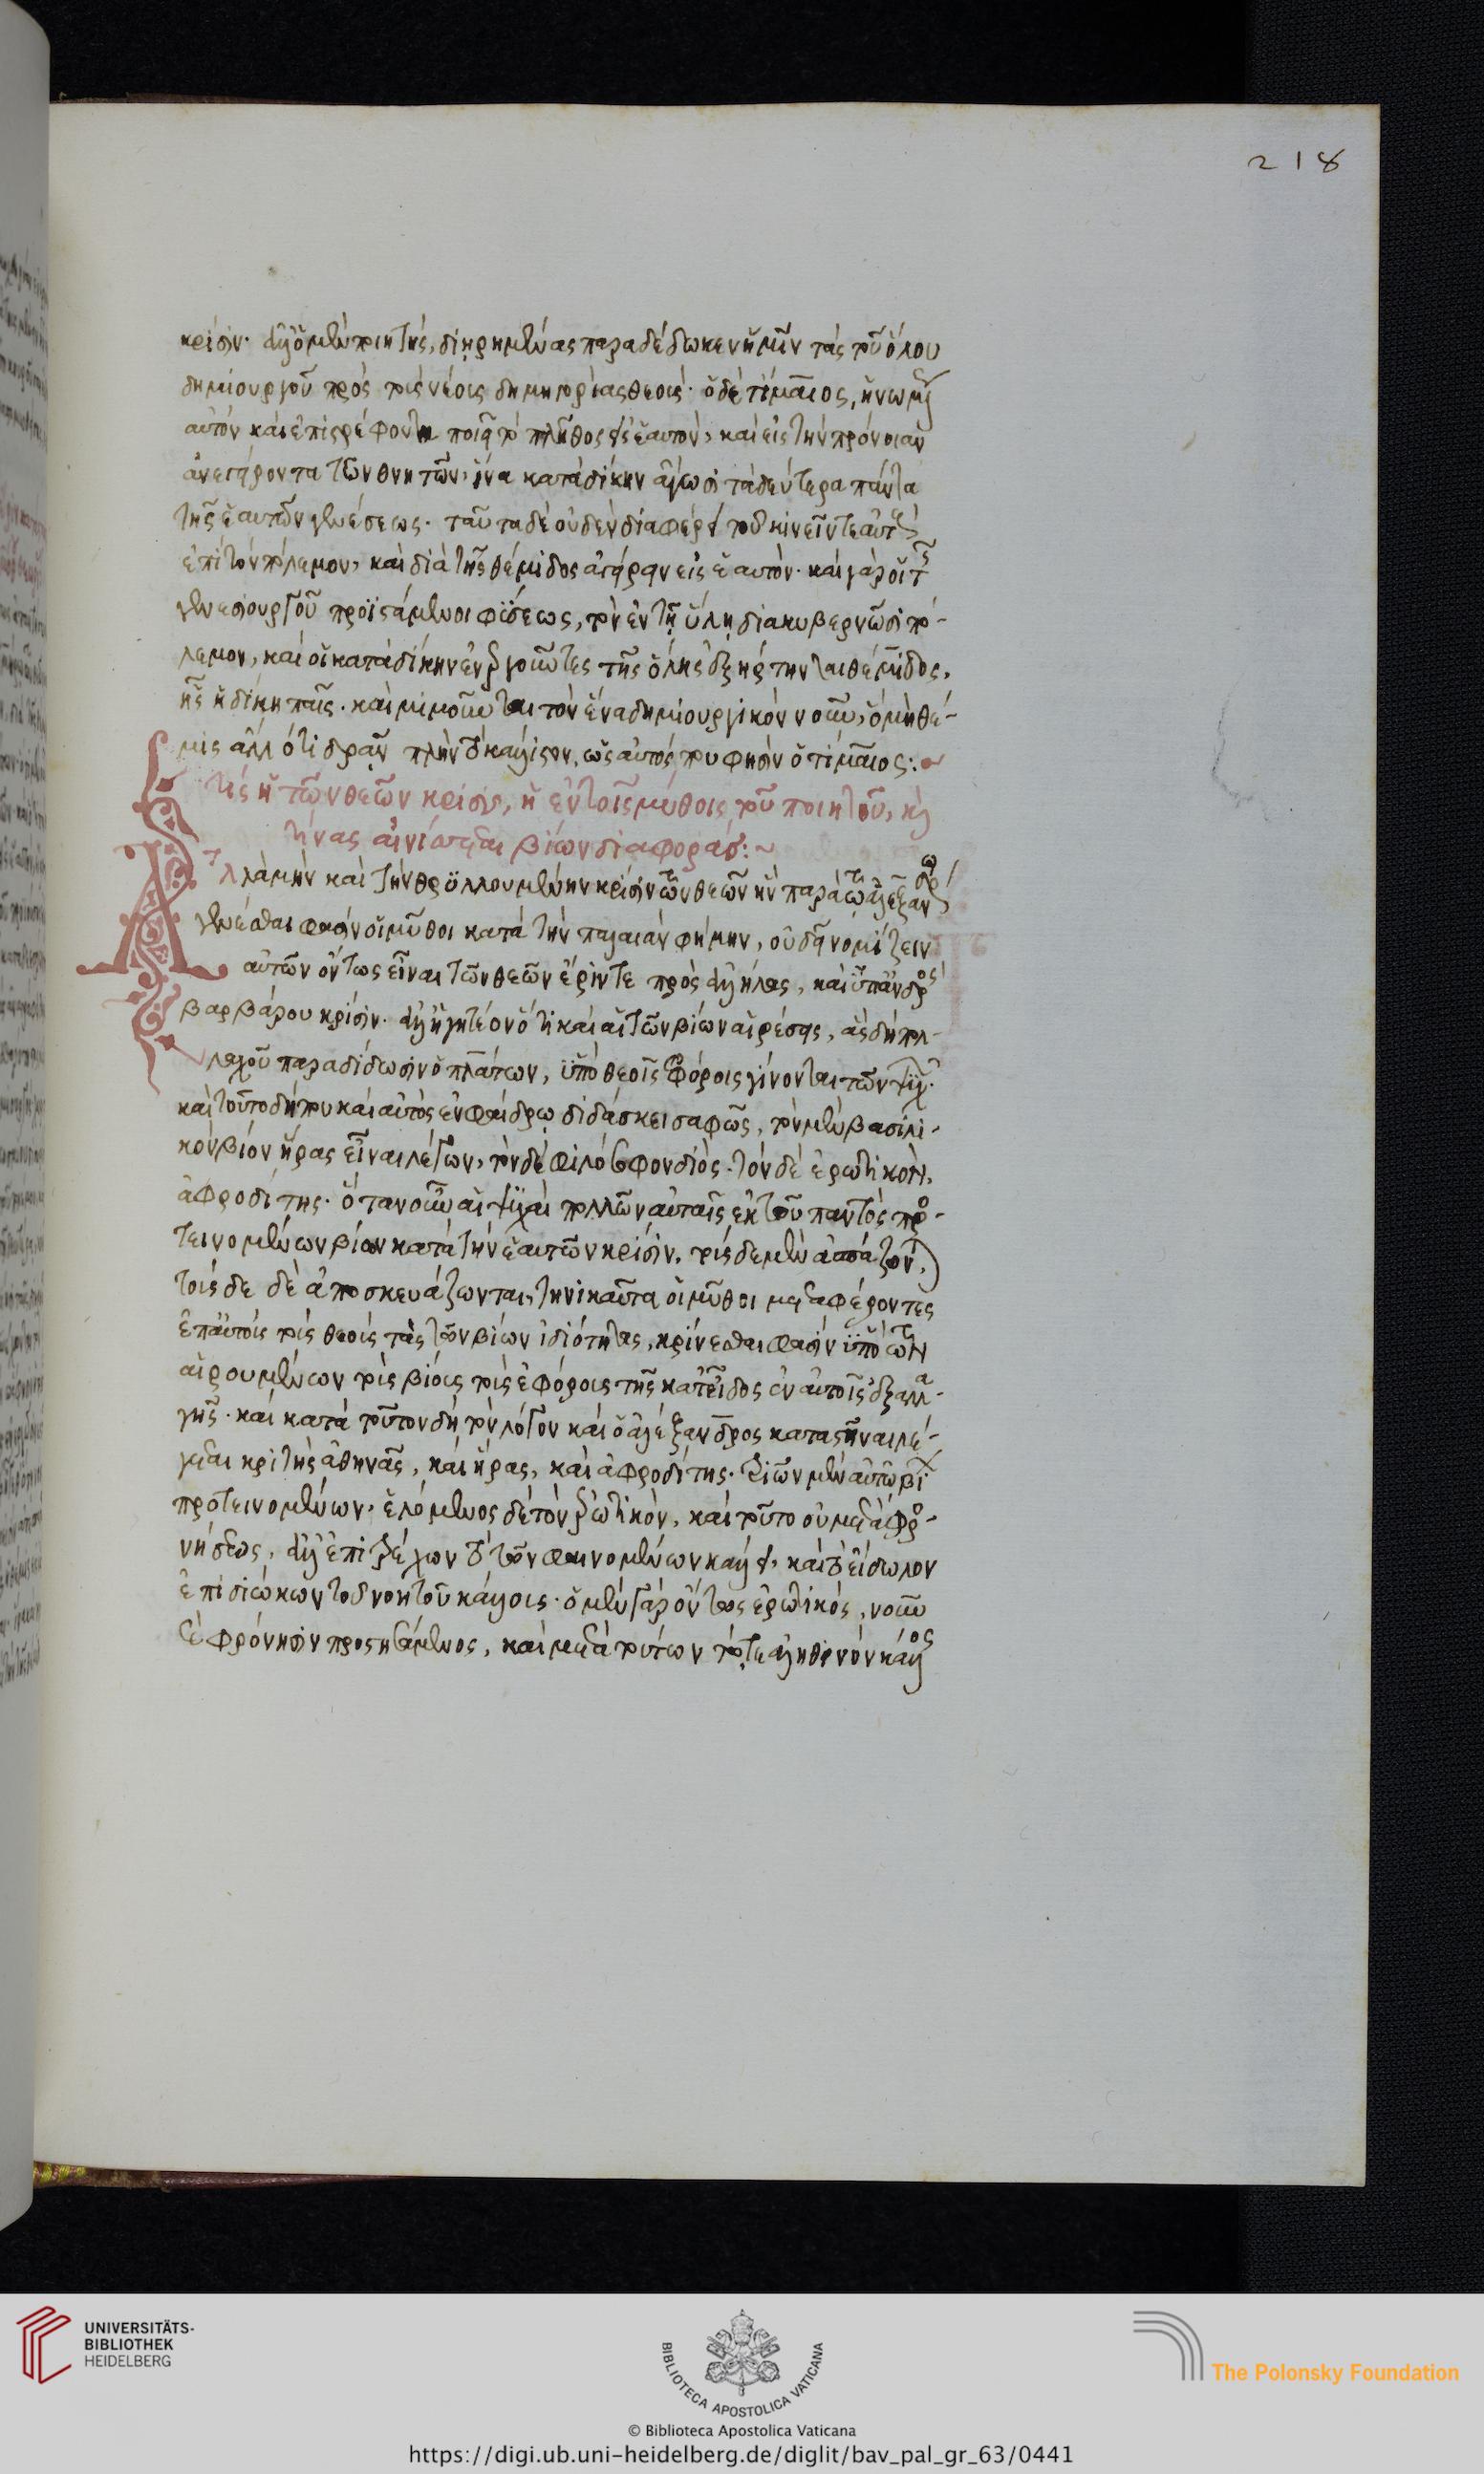 218
κρίσιν. ἀλλ' ὁ μὲν ποιητὴς, διῃρημένας παραδέδωκεν ἡμῖν τὰς τοῦ ὅλου
δημιουργοῦ πρὸς τοὺς νέους δημηγορίας θεούς. ὁ δὲ τίμαιος, ἡνωμένως
αὐτὸν καὶ ἐπιστρέφοντα ποιεῖ τὸ πλῆθος εἰς ἑαυτὸν, καὶ εἰς τὴν πρόνοιαν
ἀνεγείροντα τῶν θνητῶν, ἵνα κατὰ δίκην ἄγωσι τὰ δεύτερα πάντα
τῆς ἑαυτῶν γενέσεως. ταῦτα δὲ οὐδὲν διαφέρει τοῦ κινεῖν τε αὐτοὺς
ἐπὶ τὸν πόλεμον, καὶ διὰ τῆς θέμιδος ἀγείρειν εἰς ἑαυτόν. καὶ γὰρ οἱ τῆς
γενεσιουργοῦ προϊστάμενοι φύσεως, τὸν ἐν τῇ ὕλῃ διακυβερνῶσι πό-
λεμον, καὶ οἱ κατὰ δίκην ἐνεργοῦντες τῆς ὅλης ἐξήρτηνται θέμιδος,
ἧς ἡ δίκη παῖς. καὶ μιμοῦνται τὸν ἕνα δημιουργικὸν νοῦν, ᾧ μὴ θέ-
μις ἄλλό τι δρᾶν πλὴν τὸ κάλλιστον, ὡς αὐτός που φησὶν ὁ τίμαιος:~
Τίς ἡ τῶν θεῶν κρίσις, ἡ ἐν τοῖς μύθοις τοῦ ποιητοῦ, καὶ
τίνας αἰνίσσεται βίων διαφοράς:~
Ἀλλὰ μὴν καὶ τὴν θρυλλουμένην κρίσιν τῶν θεῶν ἣν παρὰ τῷ ἀλεξάνδρῳ
γενέσθαι φασὶν οἱ μῦθοι κατὰ τὴν παλαιὰν φήμην, οὐ δεῖ νομίζειν
αὐτῶν ὄντως εἶναι τῶν θεῶν ἔριν τε πρὸς ἀλλήλας, καὶ ὑπ' ἀνδρὸς
βαρβάρου κρίσιν. ἀλλ' ἡγητέον ὅτι καὶ αἱ τῶν βίων αἱρέσεις, ἃς δὴ πολ-
λαχοῦ παραδίδωσιν ὁ πλάτων, ὑπὸ θεοῖς ἐφόροις γίνονται τῶν ψυχῶν.
καὶ τοῦτο δήπου καὶ αὐτὸς ἐν φαίδρῳ διδάσκει σαφῶς, τὸν μὲν βασιλι-
κὸν βίον ἥρας εἶναι λέγων, τὸν δὲ φιλόσοφον διὸς. τὸν δὲ ἐρωτικὸν,
ἀφροδίτης. ὅταν οὖν αἱ ψυχαὶ πολλῶν αὐταῖς ἐκ τοῦ παντὸς προ-
τεινομένων βίων κατὰ τὴν ἑαυτῶν κρίσιν, τοὺς δε μὲν ἀσπάζονται,
τοὺς δε δὲ ἀποσκευάζωνται, τηνικαῦτα οἱ μῦθοι μεταφέροντες
ἐπ' αὐτοὺς τοὺς θεοὺς τὰς τῶν βίων ἰδιότητας, κρίνεσθαι φασὶν ὑπὸ τῶν
αἱρουμένων τοὺς βίους τοὺς ἐφόρους τῆς κατ' εἶδος ἐν αὐτοῖς ἐξαλλα-
γῆς. καὶ κατὰ τοῦτον δὴ τὸν λόγον καὶ ὁ ἀλέξανδρος καταστῆναι λέ-
γεται κριτὴς ἀθηνᾶς, καὶ ἥρας, καὶ ἀφροδίτης. τριῶν μὲν αὐτῷ βίων
προτεινομένων. ἑλόμενος δὲ τὸν ἐρωτικὸν, καὶ τοῦτο οὐ μετὰ φρο-
νήσεως, ἀλλ' ἐπιτρέχων τὸ τῶν φαινομένων κάλλει, καὶ τὸ εἴδωλον
ἐπιδιώκων τοῦ νοητοῦ κάλλους. ὁ μὲν γὰρ ὄντως ἐρωτικὸς, νοῦν
καὶ φρόνησιν προστησάμενος, καὶ μετὰ τούτων τό τε ἀληθινὸν κάλλος
UNIVERSITÄTS-
BIBLIOTHEK
HEIDELBERG
BIBLIOTECA APOSTOLICA VATICANA
The Polonsky Foundation
© Biblioteca Apostolica Vaticana
https://digi.ub.uni-heidelberg.de/diglit/bav_pal_gr_63/0441